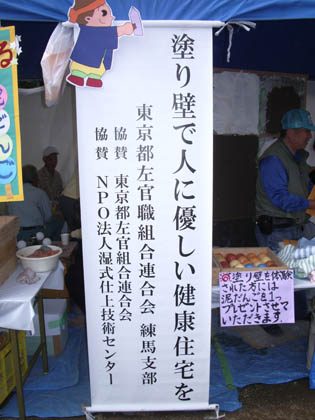 塗り壁で人に優しい健康住宅を
東京都左官職組合連合会 練馬支部
協賛 東京都左官組合連合会
協賛 NPO法人湿式仕上技術センター
塗り壁を体験
された方には
泥だんごを1つ
プレゼントさせて
いただきます
る
泥だんご